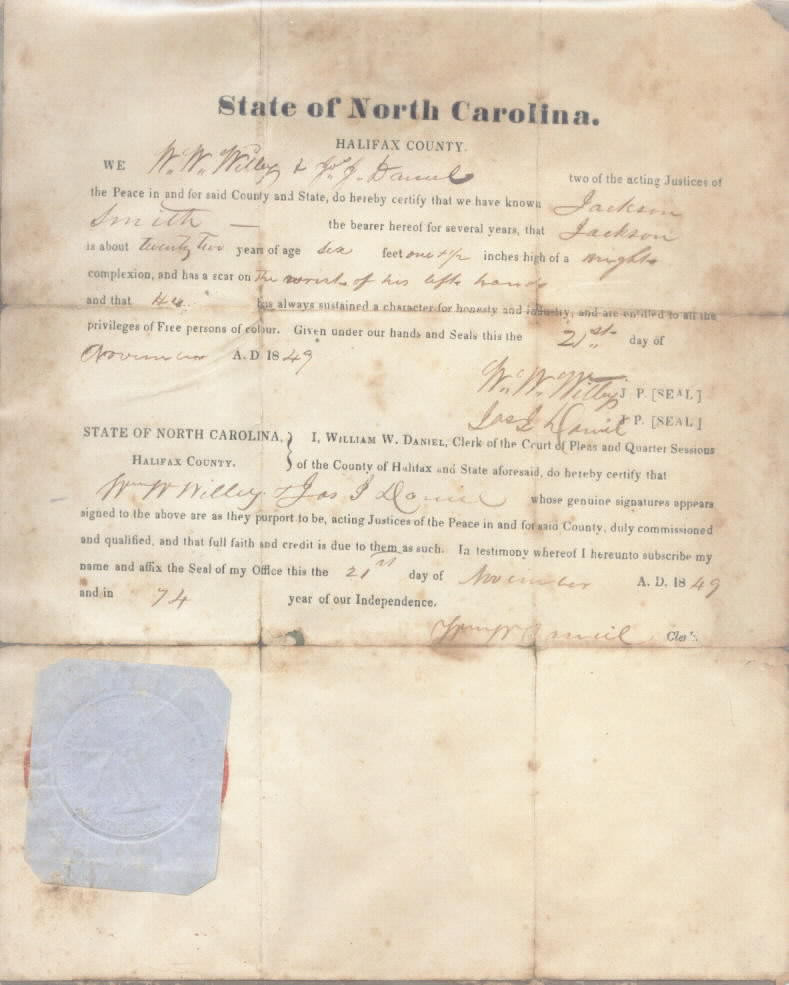 State of North Carolina.
HALIFAX COUNTY.
WE W. W. Willey & Jos. J. Daniel two of the acting Justices of
the Peace in and for said County and State, do hereby certify that we have known Jackson
Smith — the bearer hereof for several years, that Jackson
is about twenty two years of age six feet one & 1/2 inches high of a
complexion, and has a scar on the wrist of his left hand
and that he has always sustained a character for honesty and industry, and are entitled to all the
privileges of Free persons of colour. Given under our hands and Seals this the 21st day of
November A. D. 1849
W. W. Willey J P. [SEAL]
Jas J. Daniel J P. [SEAL]
STATE OF NORTH CAROLINA,
HALIFAX COUNTY.
I, WILLIAM W. DANIEL, Clerk of the Court of Pleas and Quarter Sessions
of the County of Halifax and State aforesaid, do hereby certify that
Wm W Willey & Jas J Daniel whose genuine signatures appears
signed to the above are as they purport to be, acting Justices of the Peace in and for said County, duly commissioned
and qualified, and that full faith and credit is due to them as such. In testimony whereof I hereunto subscribe my
name and affix the Seal of my Office this the 21st day of November A. D. 1849
and in 74 year of our Independence.
Wm W Daniel Clerk.